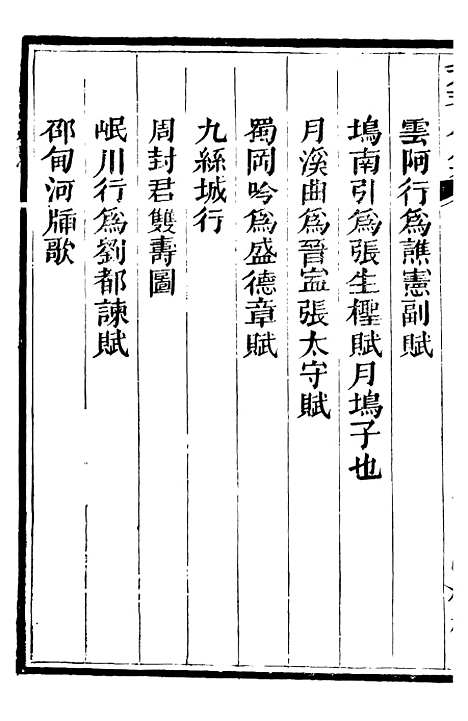 雲阿行爲譙憲副賦
塢南引爲張生檉賦月塢子也
月溪曲爲晉寧張太守賦
蜀岡吟爲盛德章賦
九絲城行
周封君雙壽圖
岷川行爲劉都諫賦
邵甸河牐歌